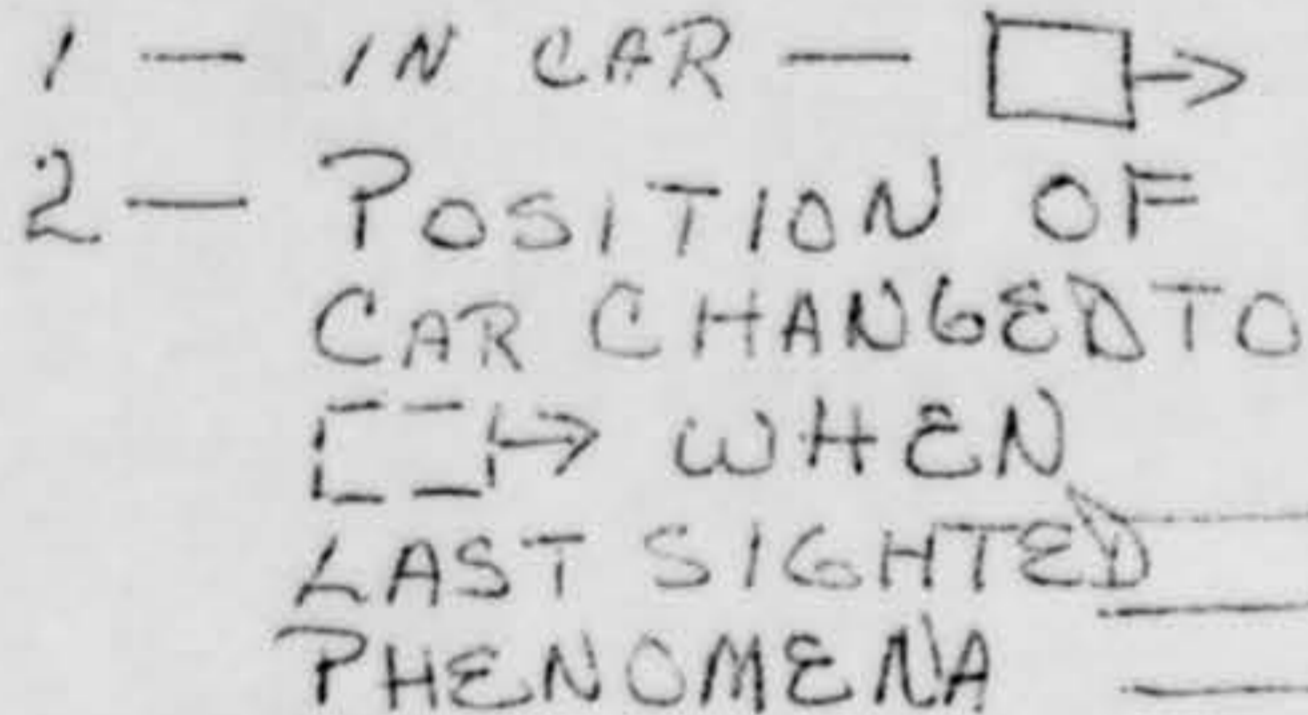 1 — IN CAR —
2 — POSITION OF
CAR CHANGED TO
WHEN
LAST SIGHTED
PHENOMENA